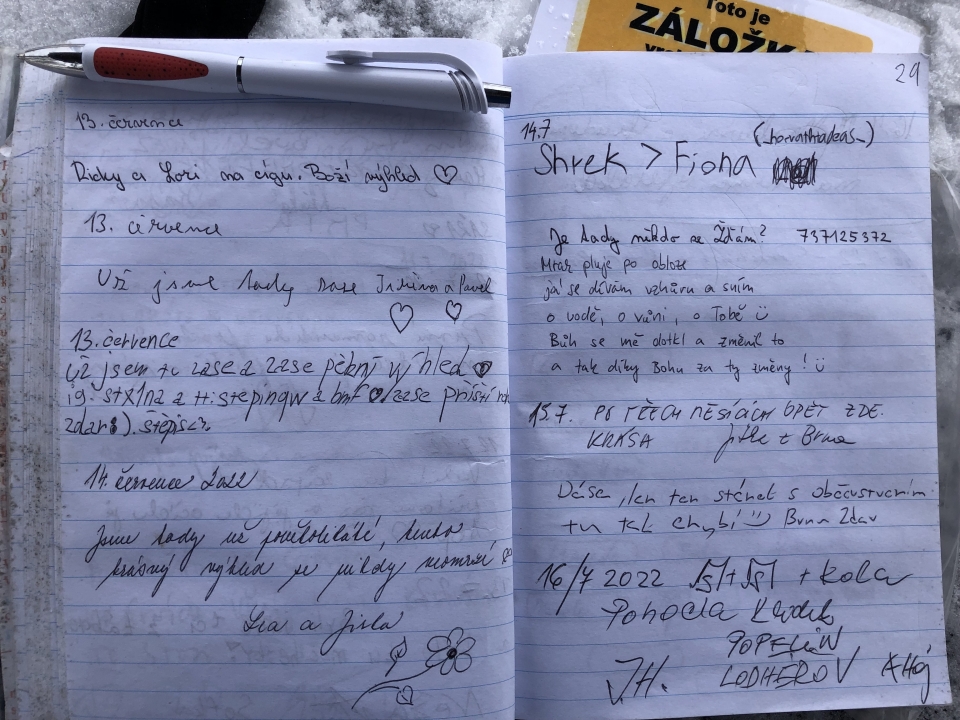 Toto je
ZÁLOŽK
29
13. července
Ricky a Lori na cígu. Boží výhled ♡
13. července
Už jsme tady zase Jiřina a Pavel
13. července
Už jsem tu zase a zase pěkný výhled
ig. stx1na a tt: stepingw a bmf zase příští
zdar :). štěpis
14. července 2022
Jsme tady už poněkolikáté, tento
krásný výhled se nikdy neomrzí
Lea a Jirka
14.7
(_horvathradeas_)
Shrek > Fiona
Je tady někdo ze Žďám? 737125372
Mrak pluje po obloze
já se dívám vzhůru a sním
o vodě, o vůni, o Tobě
Bůh se mě dotkl a změnil to
a tak díky Bohu za ty změny!
15.7. PO TŘECH MĚSÍCÍCH OPĚT ZDE.
KRÁSA Jitka z Brna
Dáša, jen ten stánek s občerstvením
tu tak chybí Brnu Zdar
16/7 2022 + Kola
Pohoda Klídek
POPELÍN
J.H. LODHÉŘOV AHoj